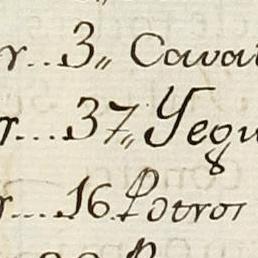 r...3,, Cava
r....37,, Yegu
r....16 Potros